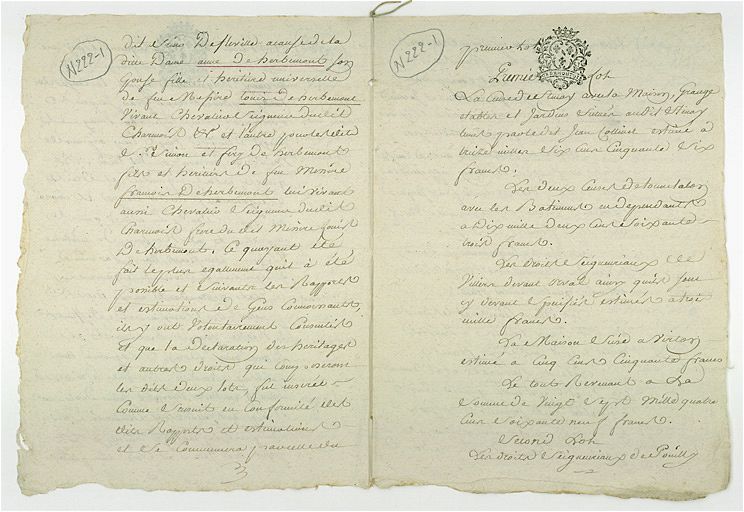 N222-1
dit Sieur Defleville acause de la
ditte Dame anne de herbemont son
Epouse fille et heritiere universelle
de feu Messire Louis De herbemont
Vivant Chevalier Seigneur dudit
Charmois & et l'autre pour ledit
S. Simon et de herbemont
fils et heritier de feu Messire
francois De herbemont lui vivant
aussi Chevalier Seigneur dudit
Charmois frere dudit Messire Louis
De herbemont. Ce quayant été
fait le plus egallement quil a été
possible et suivant les Rapports
et estimations de Gens Connoissants,
ils y ont Volontairement Consentis
et que la declaration des heritages
et autres droits qui composeront
les dits deux lots, fut inseré
Comme s'ensuit en Conformité des
dits Rapports et estimations
et Se Commencera par celle du
N222-1
premier Lot
Premier Loh
La Cense de avec la Maison, Grange
etables et Jardins Scitués audit
tenus par ledit Jean Collinet estimé a
treize milles Six Cens Cinquante Six
francs.
Les deux Censes de
avec les Batiments en dependants
a Dix mille deux Cens Soixante
trois francs.
Les droits Seigneuriaux de
Villers devant orval ainsy quils sont
cy devant Specifiés estimés a trois
mille francs.
La Maison Scise a Virton
estimé a Cinq Cens Cinquante francs
Le tout Revenant a La
Somme de Vingt Sept Mille quatre
Cens Soixante neuf francs.
Second Loh
Les droits Seigneuriaux de Pouilly